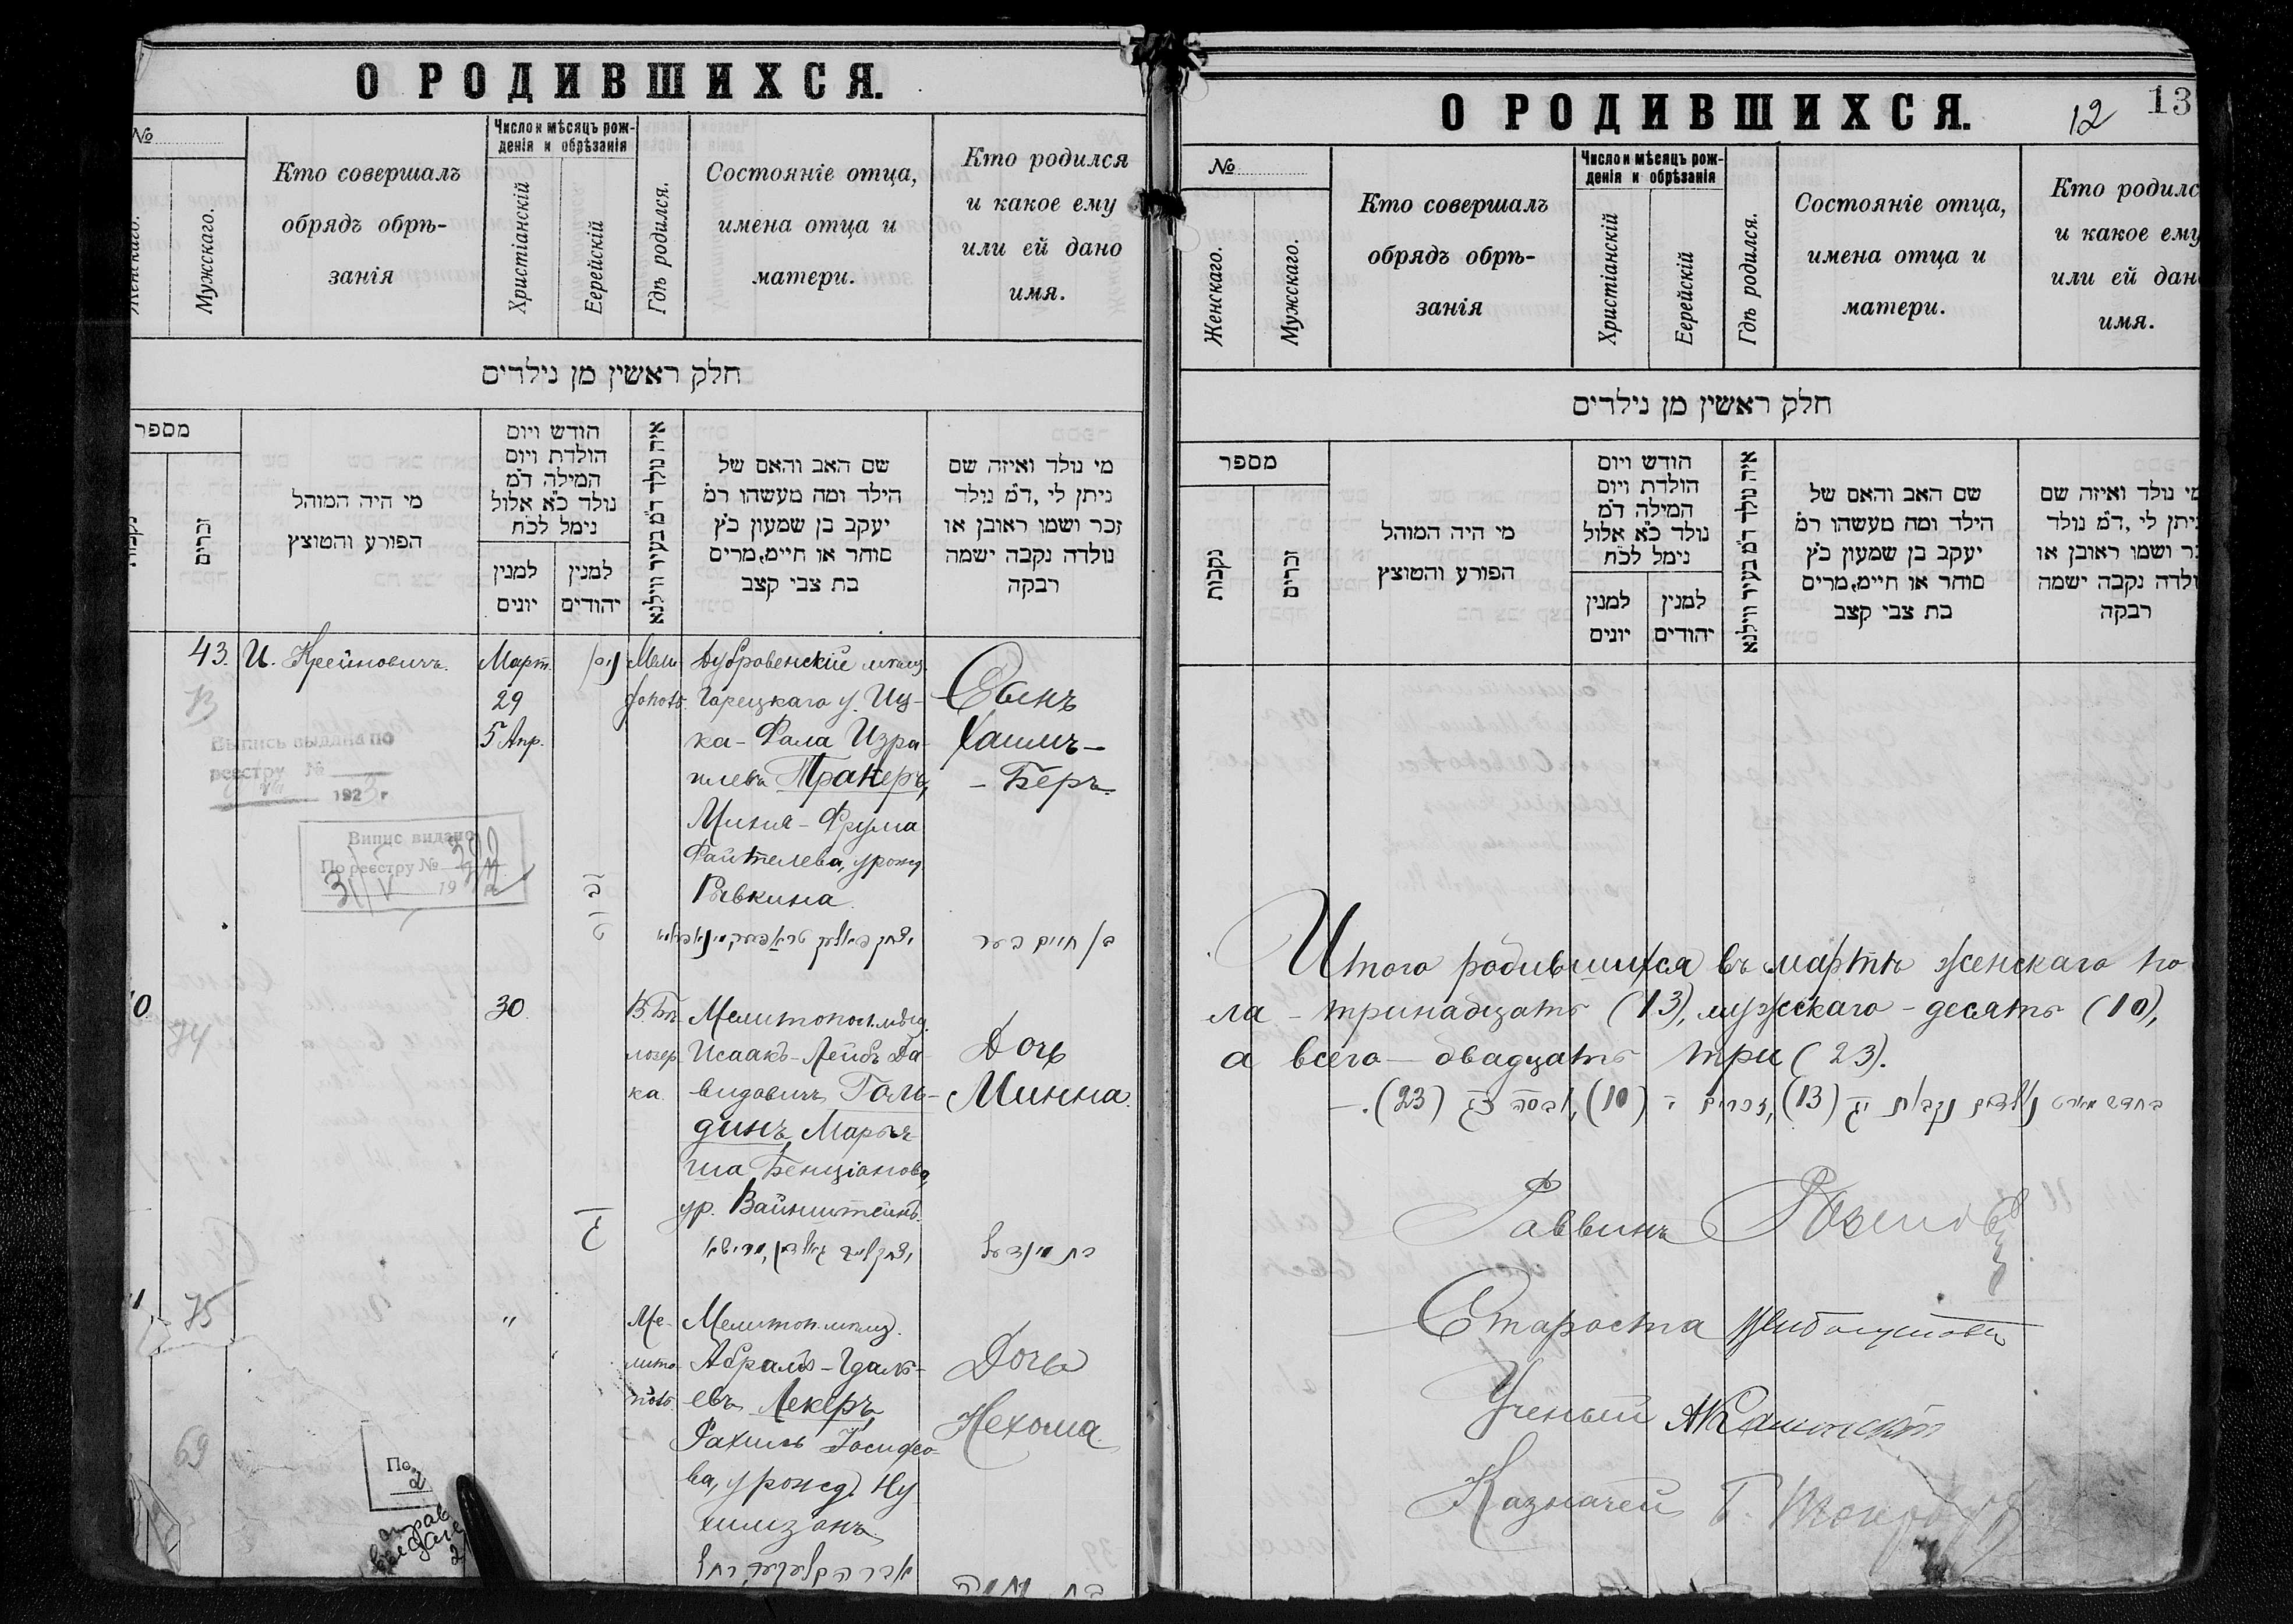 О РОДИВШИХСЯ.
№
Женскаго.
Мужскаго.
Кто совершалъ
обрядъ обрѣ-
занія
Число и мѣсяцъ рож-
денія и обрѣзанія
Христіанскій
Еврейскій
Гдѣ родился.
Состояніе отца,
имена отца и
матери.
Кто родился
и какое ему
или ей дано
имя.
חלק ראשין מן נילדים
מספר
נקבות
זכרים
מי היה המוהל
הפורע והטוצץ
הודש ויום
הולדת ויום
המילה דמ
נולד כא אלול
נימל לכח
למנין
יונים
למנין
יהודים
איה נולד דמ בעיר ווילנא
שם האב והאם של
הילד ומה מעשהו רמ
יעקב בן שמעון כץ
סוחר או חיימ,מרים
בת צבי קצב
מי נולד ואיזה שם
ניתן לי ,דמ נולד
זכר ושמו ראובן או
נולדה נקבה ישמה
רבקה
43. И. Крейновичъ.
Март.
29
5 Апр.
Мели
тополь.
Дубровенскій мѣщ.
Горецкаго у. Иц-
ка-Фала Изра-
илевъ
Миня-Фрума
Файтелева, урожд.
Рывкина.
Сынъ
Хаимъ-
-Беръ.
73
Выпись выдана по
реестру №
192 г
Випис видано
По реєстру №
19
בן חיים בער
0.
74
30
В. Бѣ-
лозер
ка.
Мелитопол. мѣщ.
Исаакъ-Лейбъ Да-
видовичъ Голь-
динъ, Марья-
ша Бенціанова,
ур. Вайнштейнъ.
Дочь
Минна.
75
"
Ме-
лито
поль.
Мелитоп. мѣщ.
Абрамъ-Гдаль-
евъ Лекеръ,
Рахиль Іосифо-
ва, урожд. Ну
Дочь
Нехома.
69
По
2
О РОДИВШИХСЯ.
12
13
№
Женскаго.
Мужскаго.
Кто совершалъ
обрядъ обрѣ-
занія
Число и мѣсяцъ рож-
денія и обрѣзанія
Христіанскій
Еерейскій
Гдѣ родился.
Состояніе отца,
имена отца и
матери.
Кто родилс
и какое ему
или ей дан
имя.
חלק ראשין מן נילדים
מספר
נקבות
זכרים
מי היה המוהל
הפורע והטוצץ
הודש ויום
הולדת ויום
המילה דמ
נולד כא אלול
נימל לכח
למנין
יונים
למנין
יהודים
איה נולד דמ בעיר ווילנא
שם האב והאם של
הילד ומה מעשהו רמ
יעקב בן שמעון כץ
סוחר או חיימ,מרים
בת צבי קצב
מי נולד ואיזה שם
ניתן לי ,דמ נולד
זכר ושמו ראובן או
נולדה נקבה ישמה
רבקה
Итого родившихся въ мартѣ женскаго по
ла - тринадцать (13), мужскаго - десять (10),
а всего - двадцать три (23).
בחדש מארט נולדים נקבות יג (13), זכרים י (10), ובסה כג (23).
Раввинъ
Староста
Ученый
Казначей